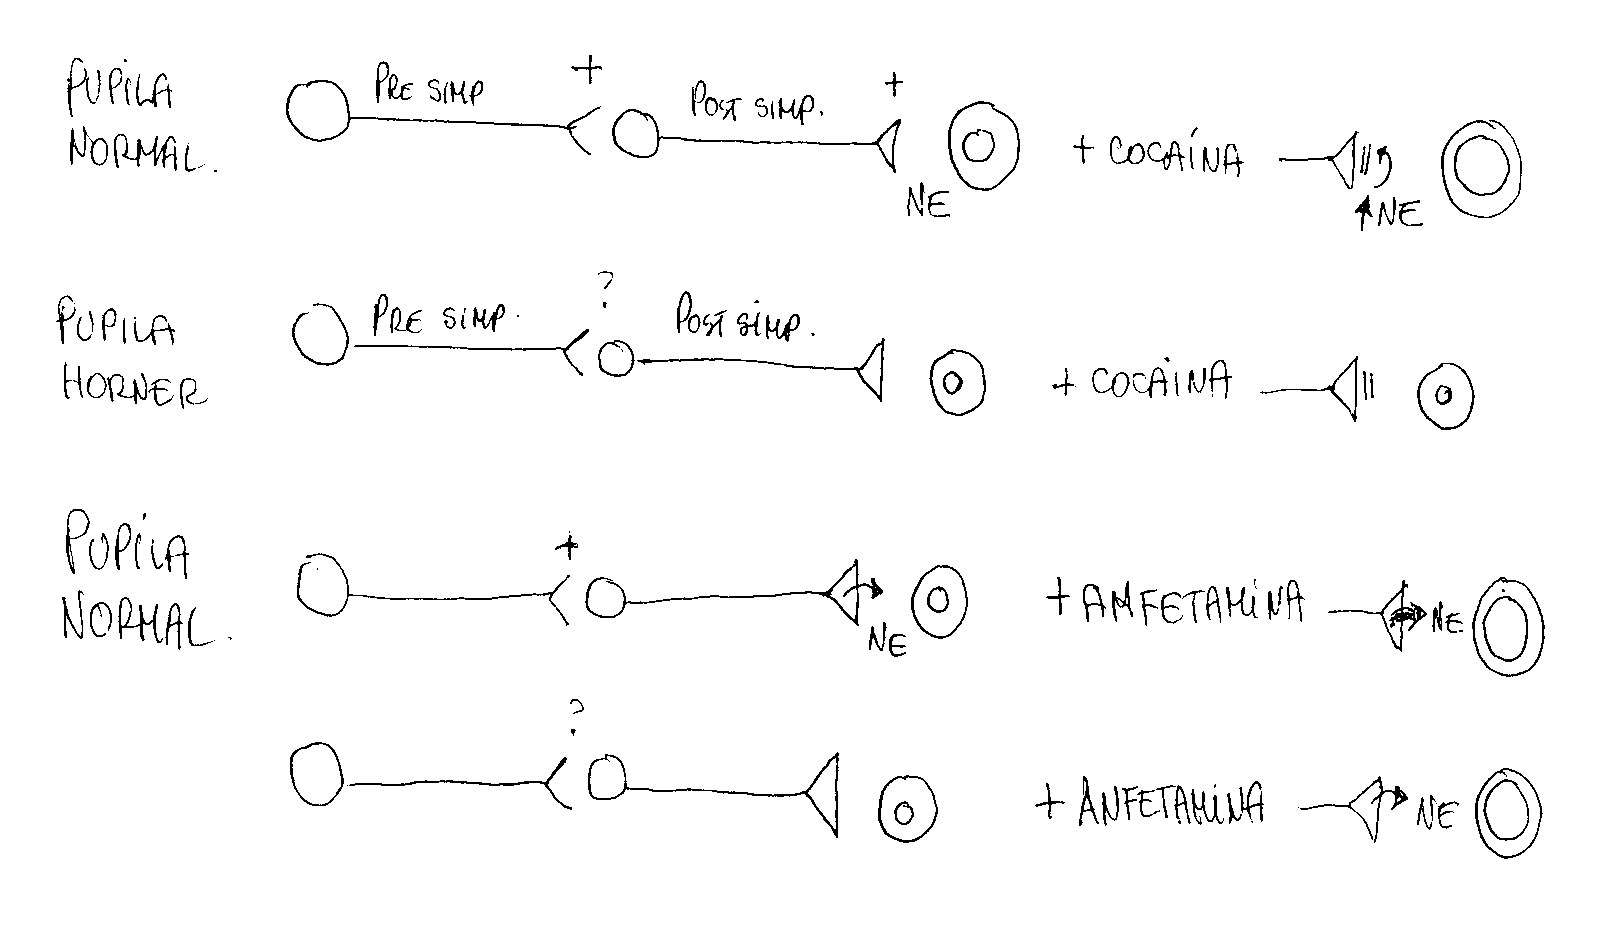 PUPILA
NORMAL.
PRE SIMP
+
POST SIMP.
+
NE
+ COCAÍNA
NE
PUPILA
HORNER
PRE SIMP.
?
POST SIMP.
+ COCAINA
PUPILA
NORMAL.
+
NE
+ AMFETAMINA
NE
?
+ ANFETAMINA
NE